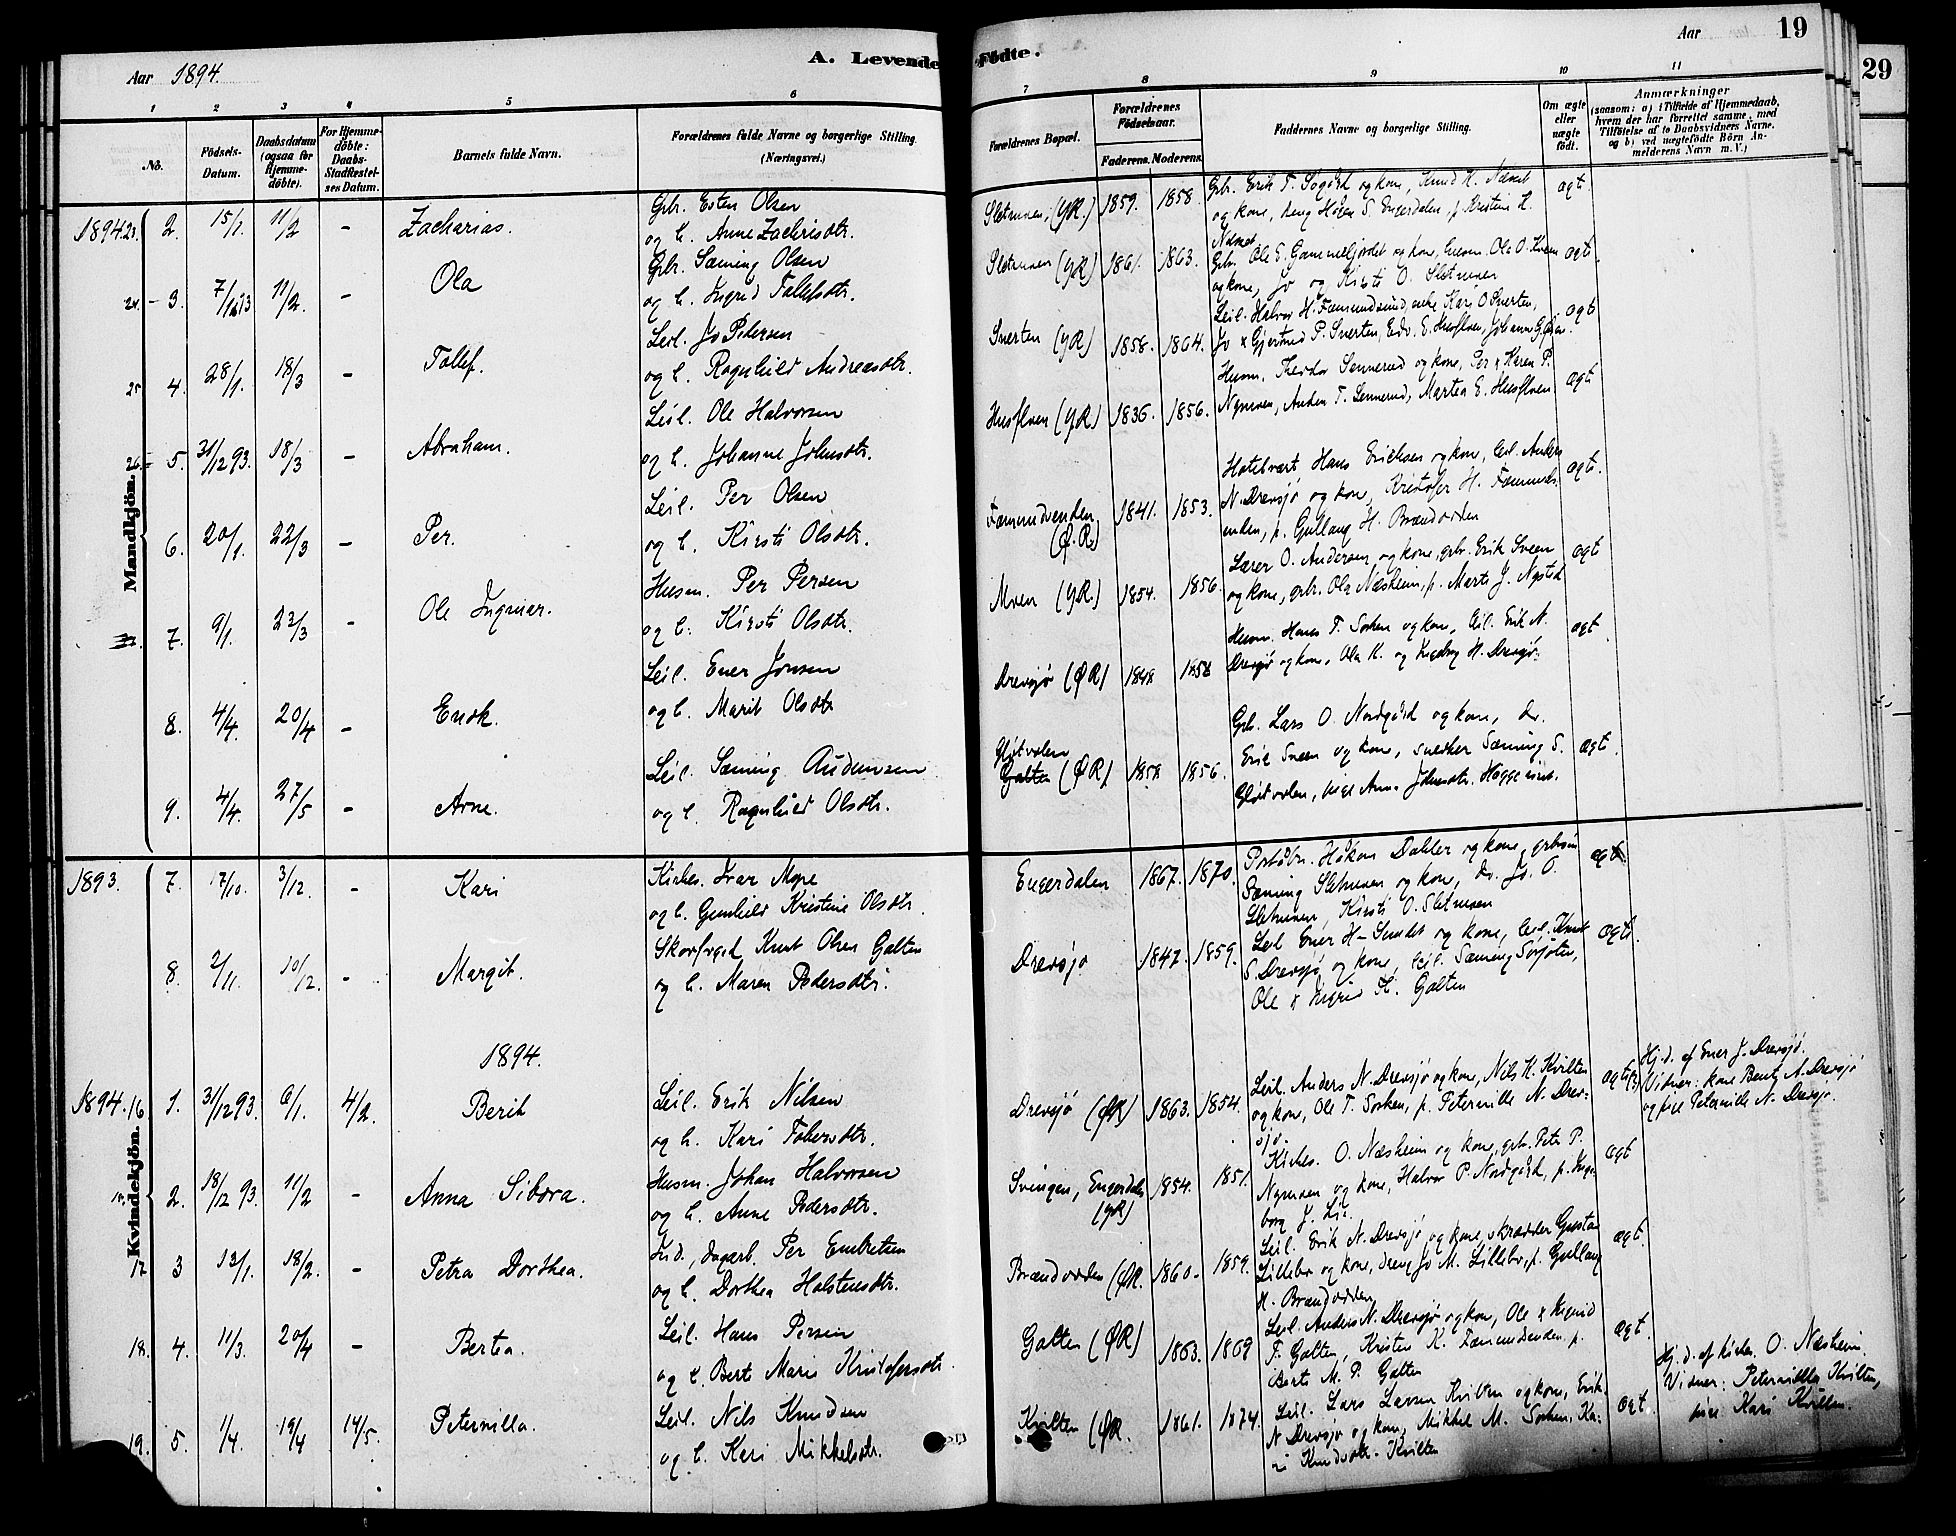 Aar 1894.
A. Levende Fødte.
Aar 19
29
1 2 3 4 5 6 7 8 9 10 11
No.
Fødsels-Datum.
Daabsdatum (ogsaa for Hjemmedöbte).
For Hjemmedöbte: Daabs-Stadfæstelses Datum.
Barnets fulde Navn.
Forældrenes fulde Navne og borgerlige Stilling. (Næringsvei.)
Forældrenes Bopæl.
Forældrenes Födselsaar.
Faderens. Moderens.
Faddernes Navne og borgerlige Stilling.
Om ægte eller uægte födt.
Anmærkninger
(saasom: a) i Tilfælde af Hjemmedaab, hvem der har forrettet samme, med Tilföielse af to Daabsvidners Navne, og b) ved uægtefödte Börn Anmelderens Navn m. V.)
Mandkjön.
1894 23. 2. 15/1. 11/2 - Zacharias. Gbr. Esten Olsen
og h. Anne Zachrisdtr.
Sletmoen, (YR.) 1859. 1858. Gbr. Erik T. Søgård og kone, Knud H. Næset
og kone, dreng Håken S. Engerdalen, p. Kristine H.
Næset
ægt
24 - 3. 7/12 93 11/2. - Ola Gbr. Sæming Olsen
og h. Ingrid Tollefsdtr.
Sletmoen (YR) 1861. 1863. Gbr. Ole E. Gammelfjordet og kone, husm. Ola O. Kveen
og kone, Jo og Kirsti O. Sletmoen
ægt
25 4. 28/1. 18/3 - Tollef. Leil. Jo Pedersen
og h. Ragnhild Andreasdtr.
Snerten (YR) 1858. 1864. Leil. Halvor H. Femundsund, enke Kari O Snerten,
Jo & Gjertrud P. Snerten, Edv. E. Husfloen,
ægt
26 - 5. 31/12 93. 18/3 - Abraham. Leil. Ole Halvorsen
og h. Johanne Johnsdtr.
Husfloen (YR) 1836. 1856. Husm. Theodor Sennerud og kone, Per & Karen P.
Nymoen, Anders T. Sennerud, Martea E. Husfloen
ægt
6. 20/1. 22/3 - Per. Leil. Per Olsen
og h. Kirsti Olsdtr.
Femundsenden (Ø.R.) 1841. 1853. Hotelvært Hans Erichsen og kone, leil. Anders
N. Drevsjø og kone, Kristofer H. Femunds
enden, p. Gullaug H. Brændvolden
ægt.
7. 9/1. 22/3 - Ole Ingmar. Husm. Per Persen
og h. Kirsti Olsdtr.
Moen (YR.) 1854. 1856. Lærer O. Andersen og kone, gbr. Erik Sveen
og kone, gbr. Ola Næsheim, p. Marte J. Nysted
ægt
8. 4/4. 20/4 - Enok. Leil. Ener Jonsen
og h. Marit Olsdtr
Drevsjø (ØR) 1848 1858 Husm. Hans T. Sorken og kone, leil. Erik N.
Drevsjø og kone, Ola K. og Ingeborg H. Drevsjø.
ægt
9. 4/4. 27/5 - Arne. Leil. Sæming Audensen
og h. Ragnhild Olsdtr.
Gløtvolen
Galten (ØR) 1858 1856. Gbr. Lars O. Nordgård og kone, do.
Erik Sveen og kone, snedker Sæming S.
Gløtvolen, pige Anne Johnsdtr.
ægt.
1893. 7. 17/10. 3/12. - Kari Kirkes. Ivar Mope
og h. Gunhild Kristine Olsdtr.
Engerdalen 1867. 1870. Håkon Dahler og kone, gbrsøn
Sæming Sletmoen og kone, do. Jo. O.
Sletmoen, Kirsti O. Sletmoen
ægt
8. 2/11. 10/12. - Margit. Skovfoged Knut Olsen Galten
og h. Maren Pedersdtr.
Drevsjø 1847. 1859. Leil Ener H. Sundet og kone, leil. Knut
S. Drevsjø og kone, leil. Sæming Sørsjøten,
Ole & Ingrid H. Galten
ægt.
1894.
Kvindekjön.
1894. 16 1. 31/12 93. 6/1. 4/2. Berit Leil. Erik Nilsen
og h. Kari Tohersdtr.
Drevsjø (ØR) 1863. 1854. Leil. Anders N. Drevsjø og kone, Nils K. Kvilten
og kone, Ole T. Sorken, p. Peternille N. Drev-
sjø.
ægt
Hj.d. af Ener J. Drevsjø.
Vidner: kone Berit A. Drevsjø
og pige Peternille N. Drevsjø.
2. 18/12 93. 11/2 - Anna Sibora. Husm. Johan Halvorsen
og h. Anne Pedersdtr.
Svingen, Engerdalen (YR) 1854. 1851. Kirkes. O. Næsheim og kone, gbr. Peter P.
Nymoen og kone, Halvor P. Nordgård, p. Inge-
borg J. Lie.
ægt
17 3 13/1. 18/2. - Petra Dorthea. Ind., dagarb. Per Embretsen
og h. Dorthea Halstensdtr.
Brændvolden (ØR. 1860. 1859. Leil. Erik N. Drevsjø og kone, skrædder Gustav
Lillebo og kone, dreng Jo M. Lillebo, p. Gullaug
H. Brændvolden
ægt.
18. 4. 11/3. 20/4 - Bertea. Leil. Hans Persen
og h. Berit Marie Kristofersdtr.
Galten (ØR) 1863. 1869 Leil. Anders N. Drevsjø og kone, Ole & Ingrid
T. Galten, Kristen K. Femundsenden, p.
Berte M. P. Galten
ægt.
19. 5. 1/4. 19/4 14/5. Peternilla. Leil. Nils Knudsen
og h. Kari Mikkelsdtr.
Kvilten (ØR. 1861. 1874. Leil. Lars Larsen Kvilten og kone, Erik
N Drevsjø og kone, Mikkel M. Sorken, Ka-
ri Knudsdtr. Kvilten
ægt.
Hj. d. af kirkes. O. Næsheim.
Vidner: Peternilla Kvilten,
pige Kari Kvilten.